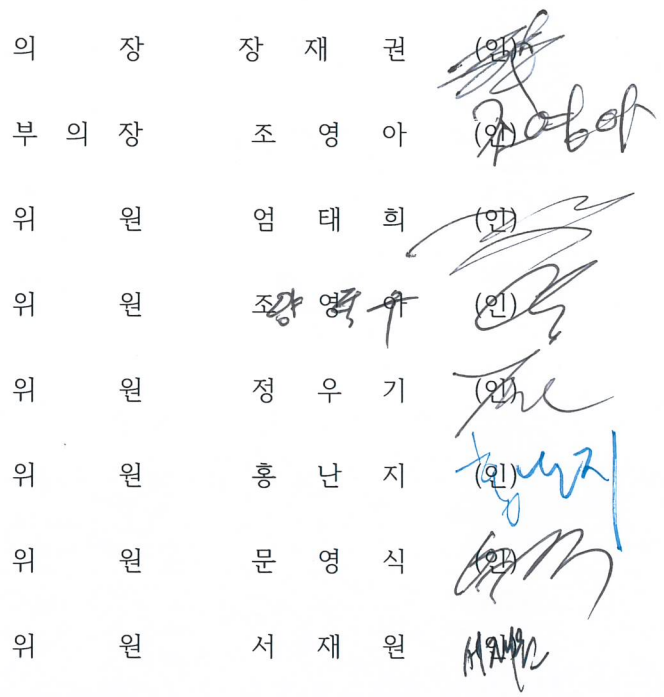 의 장 장 재 권 (인)
부 의 장 조 영 아 (인) 조영아
위 원 엄 태 희 (인)
위 원 조 영 아 (인)
위 원 정 우 기 (인)
위 원 홍 난 지 (인) 홍난지
위 원 문 영 식 (인)
위 원 서 재 원 (인) 서재원